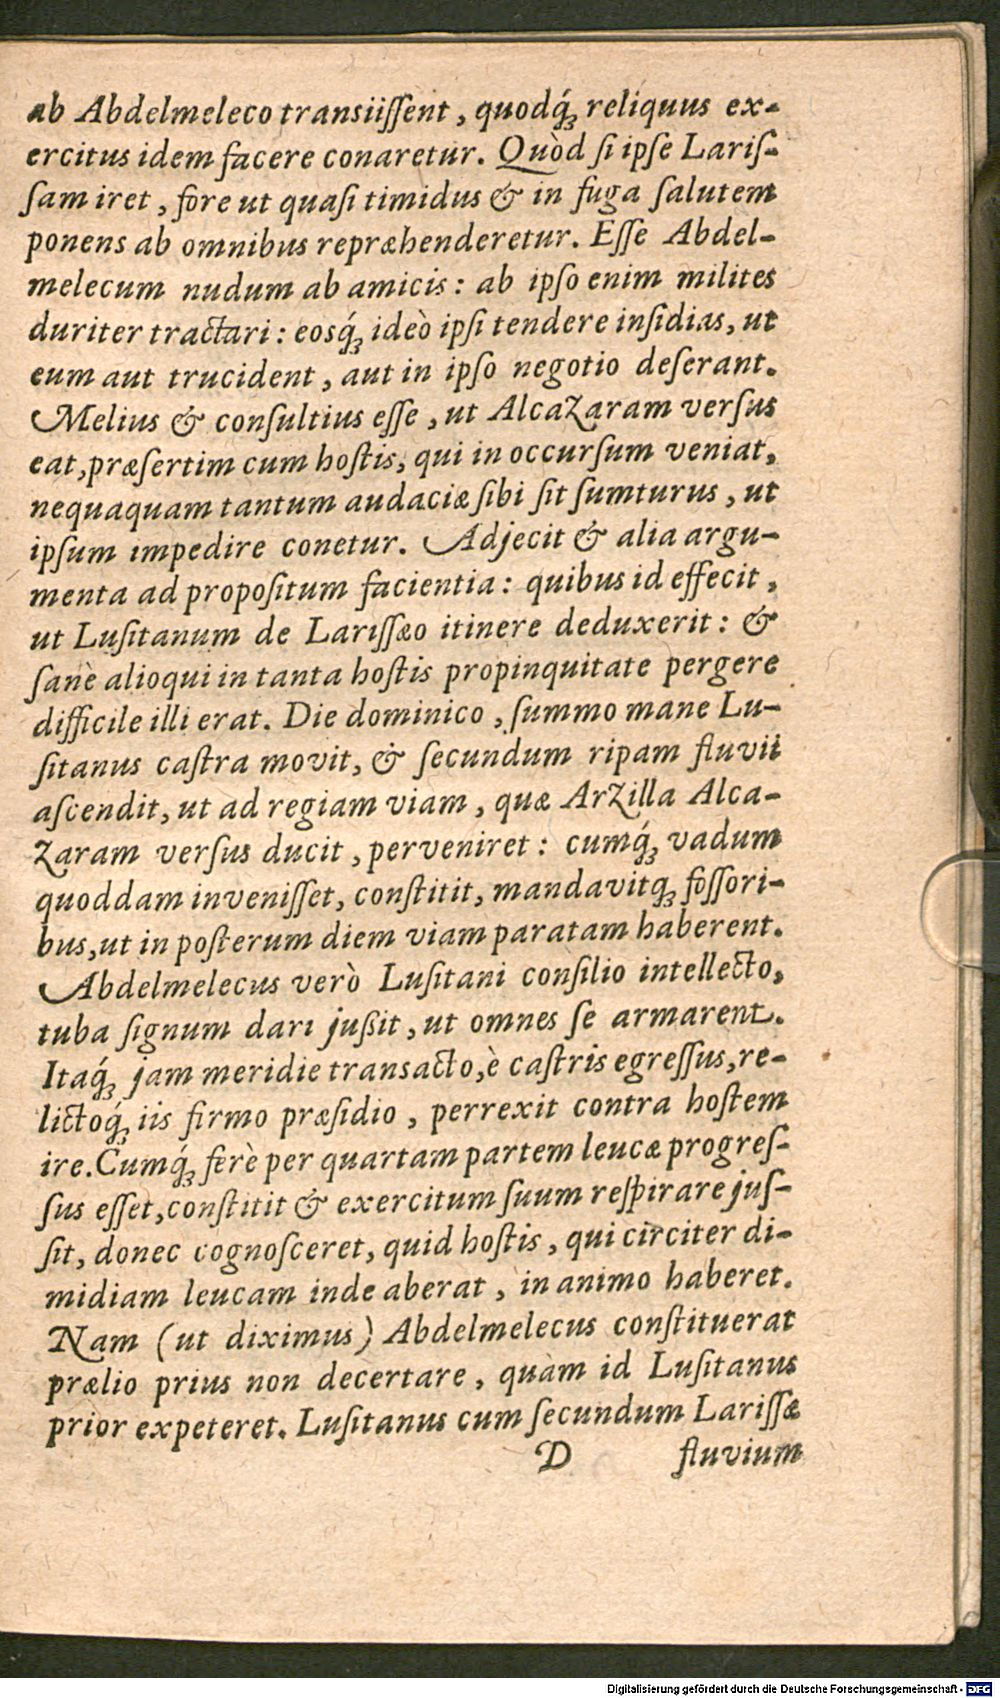 ab Abdelmeleco transiiſſent, quodq́ꝫ reliquus ex-
ercitus idem facere conaretur. Quòd ſi ipſe Lariſ-
ſam iret, fore ut quaſi timidus & in fuga ſalutem
ponens ab omnibus repræhenderetur. Eſſe Abdel-
melecum nudum ab amicis: ab ipſo enim milites
duriter tractari: eosq́ꝫ ideò ipſi tendere inſidias, ut
eum aut trucident, aut in ipſo negotio deſerant.
Melius & conſultius eſſe, ut Alcazaram verſus
eat, præſertim cum hoſtis, qui in occurſum veniat,
nequaquam tantum audaciæ ſibi ſit ſumturus, ut
ipſum impedire conetur. Adjecit & alia argu-
menta ad propoſitum facientia: quibus id effecit,
ut Luſitanum de Lariſſæo itinere deduxerit: &
ſanè alioqui in tanta hoſtis propinquitate pergere
difficile illi erat. Die dominico, ſummo mane Lu-
ſitanus caſtra movit, & ſecundum ripam fluvii
aſcendit, ut ad regiam viam, quæ Arzilla Alca-
zaram verſus ducit, perveniret: cumq́ꝫ vadum
quoddam inveniſſet, conſtitit, mandavitqꝫ foſſori-
bus, ut in poſterum diem viam paratam haberent.
Abdelmelecus verò Luſitani conſilio intellecto,
tuba ſignum dari jußit, ut omnes ſe armarent.
Itaq́ꝫ jam meridie transacto, è caſtris egreſſus, re-
lictoq́ꝫ iis firmo præſidio, perrexit contra hoſtem
ire. Cumq́ꝫ ferè per quartam partem leucæ progreſ-
ſus eſſet, conſtitit & exercitum ſuum reſpirare juſ-
ſit, donec cognoſceret, quid hoſtis, qui circiter di-
midiam leucam inde aberat, in animo haberet.
Nam (ut diximus) Abdelmelecus conſtituerat
prælio prius non decertare, quàm id Luſitanus
prior expeteret. Luſitanus cum ſecundum Lariſſæ
D fluvium
Digitalisierung gefördert durch die Deutsche Forschungsgemeinschaft - DFG